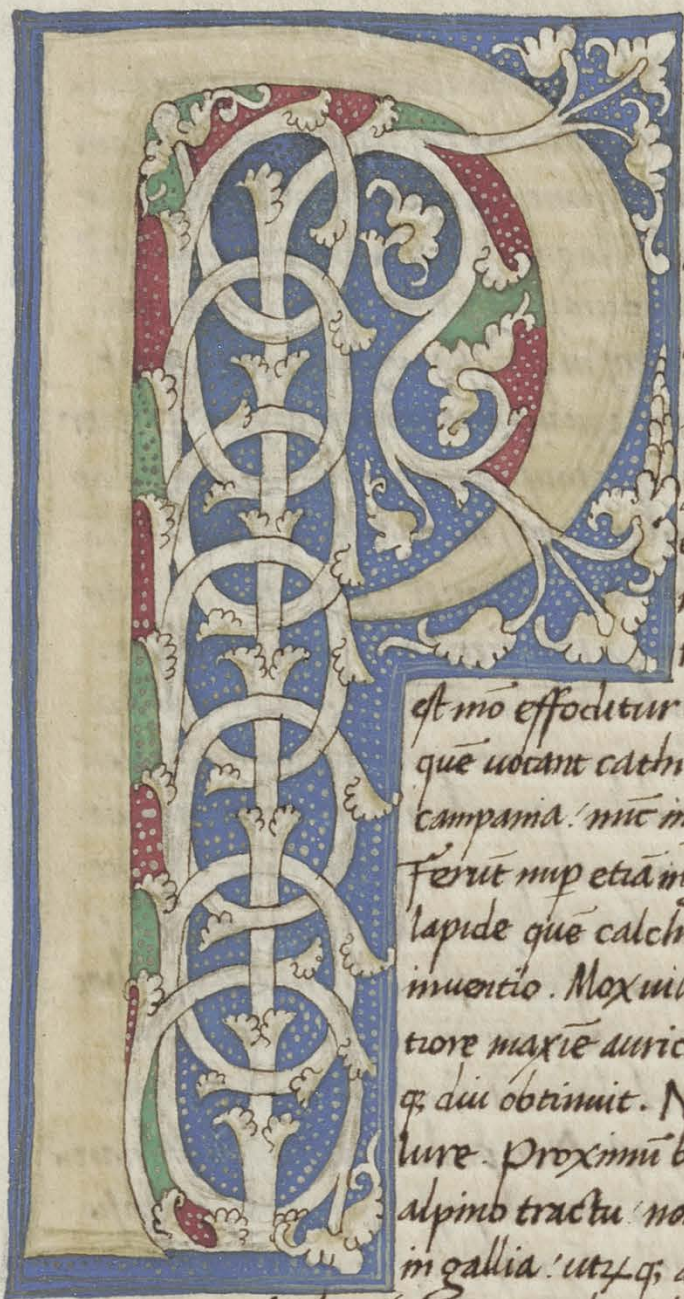 P
est mō effoditur
quē uocant cadm
campania: nūc in
Ferūt nup etiā in
lapide quē calch
inuentio. Mox uil
tiore maxīe auric
q; diu obtinuit. N
lure. Proximū b
alpino tractu no
in gallia: utrq;